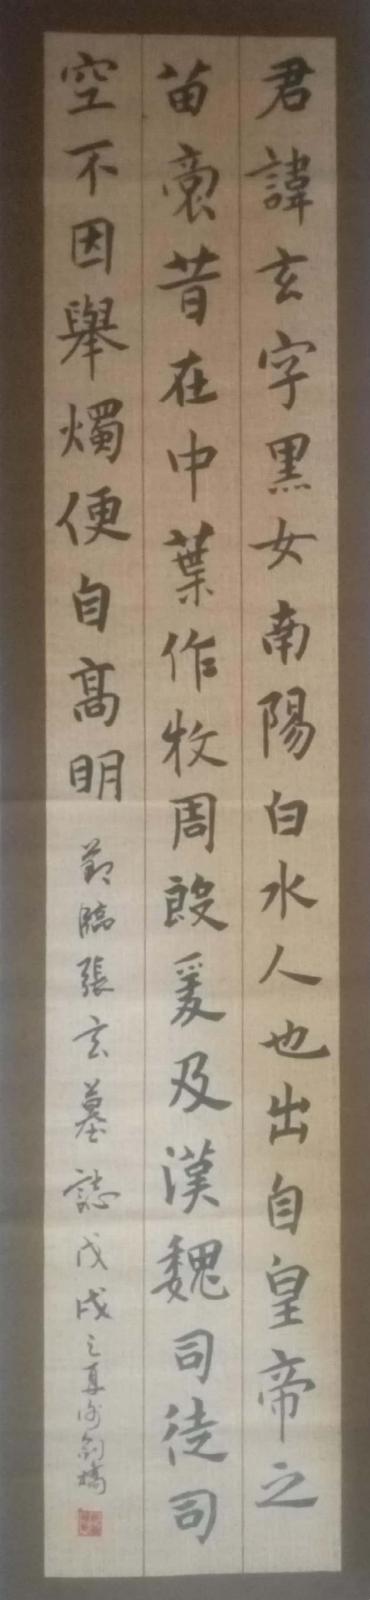 君諱玄字黑女南陽白水人也出自皇帝之
苗裔昔在中葉作牧周殷爰及漢魏司徒司
空不因舉燭便自高明 節臨張玄墓誌戊戌之夏